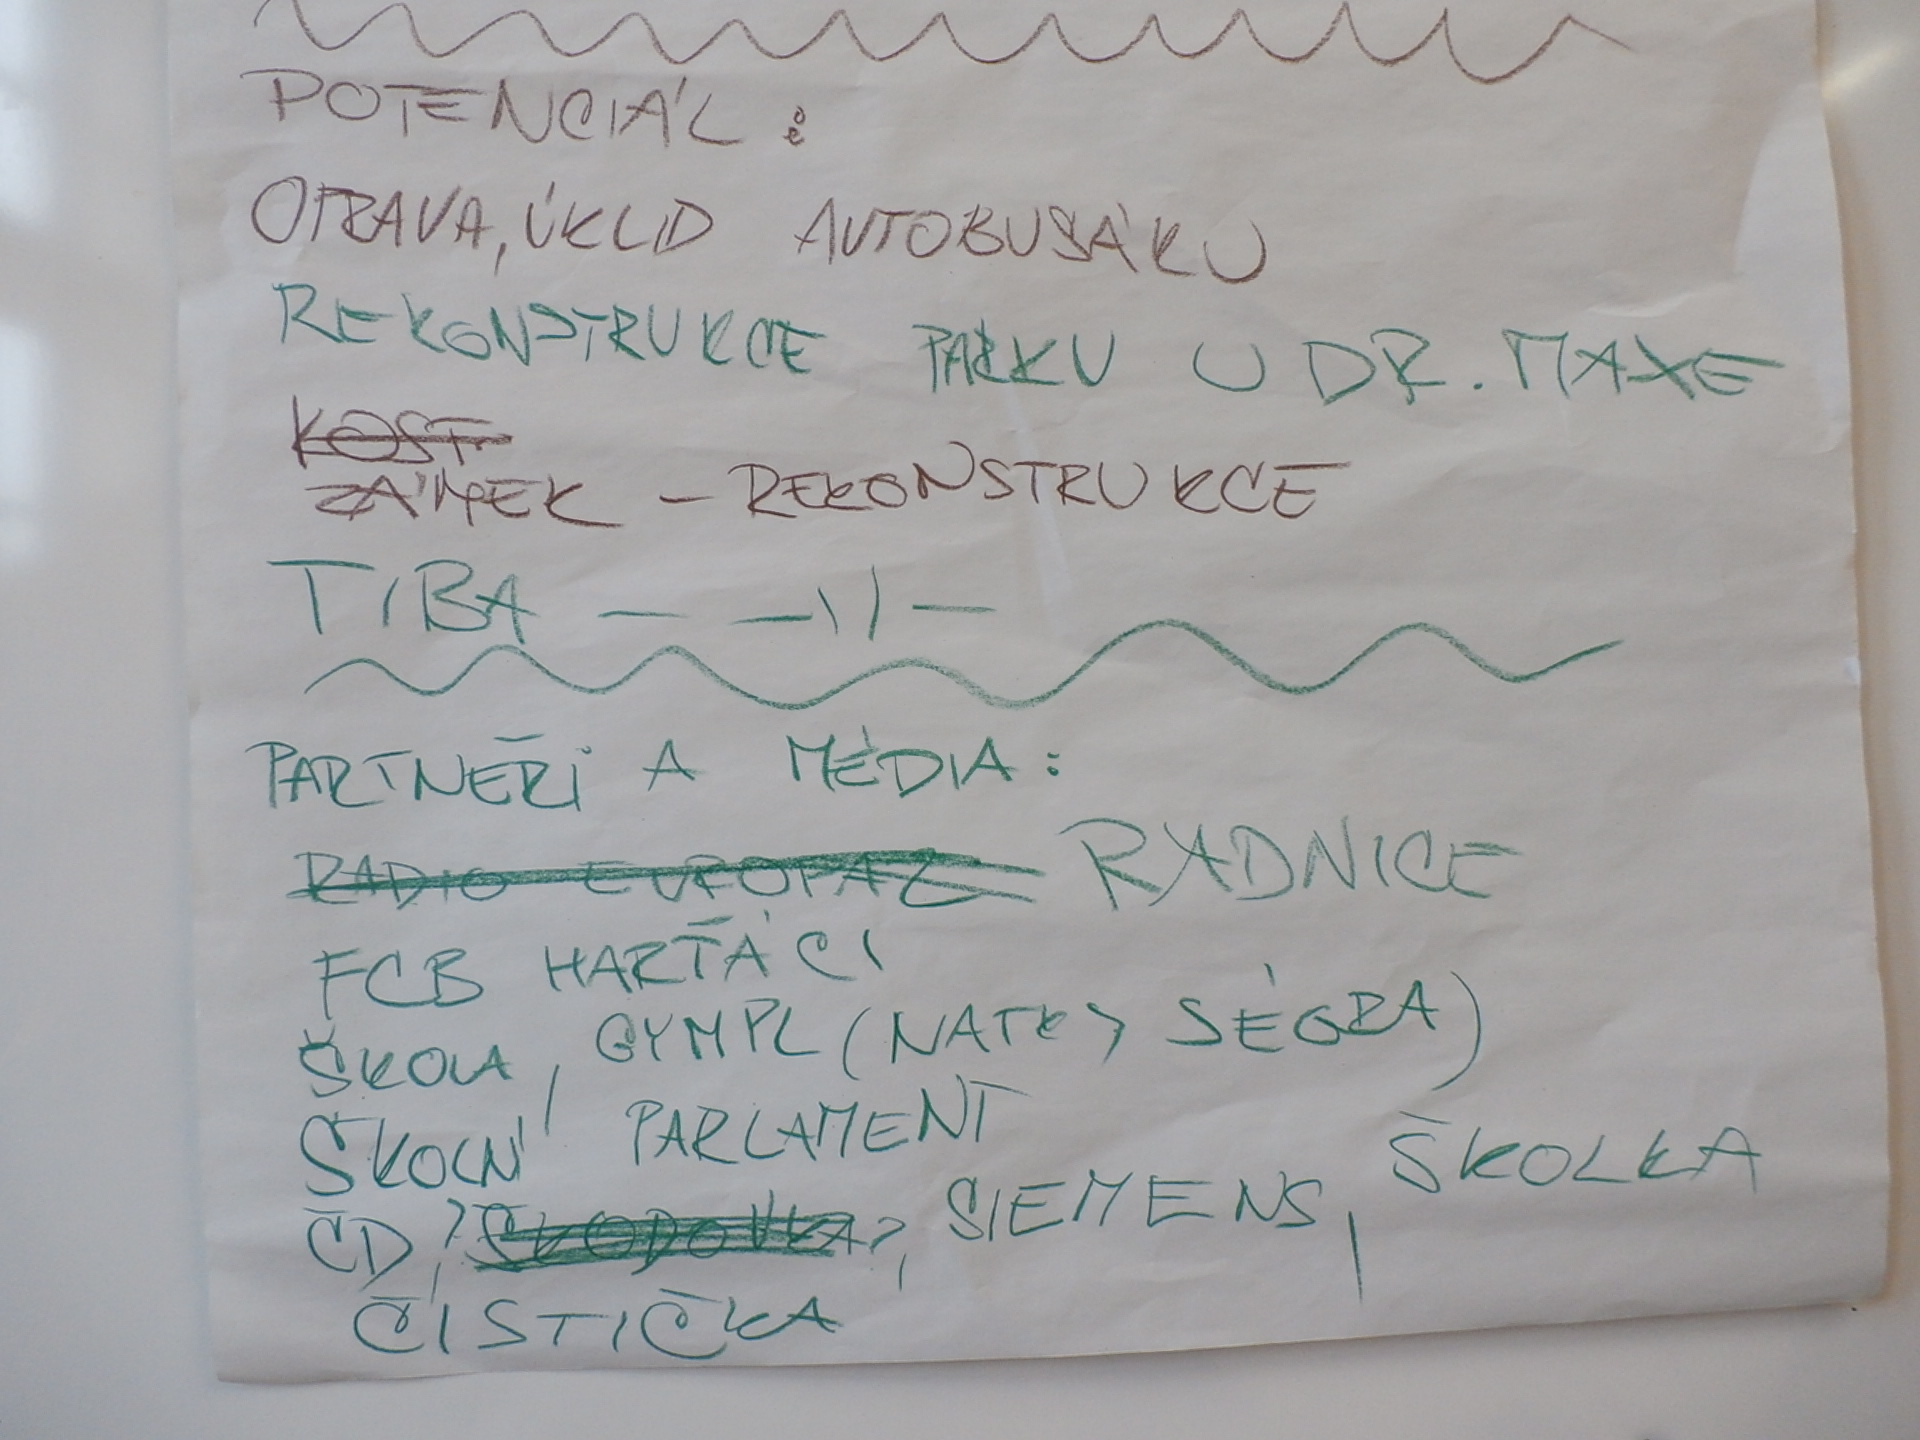 POTENCIÁL:
OPRAVA, ÚKLID AUTOBUSÁKU
REKONSTRUKCE PARKU U DR. MAXE
KOST
ZÁMEK - REKONSTRUKCE
TIBA - -11-
PARTNEŘI A MÉDIA:
RADIO EVROPA 2 RADNICE
FCB HARŤÁCI
ŠKOLA, GYMPL (NATK> SÉGRA)
ŠKOLNÍ PARLAMENT
ČD, ŠKODOVKA, SIEMENS, ŠKOLKA
ČISTIČKA